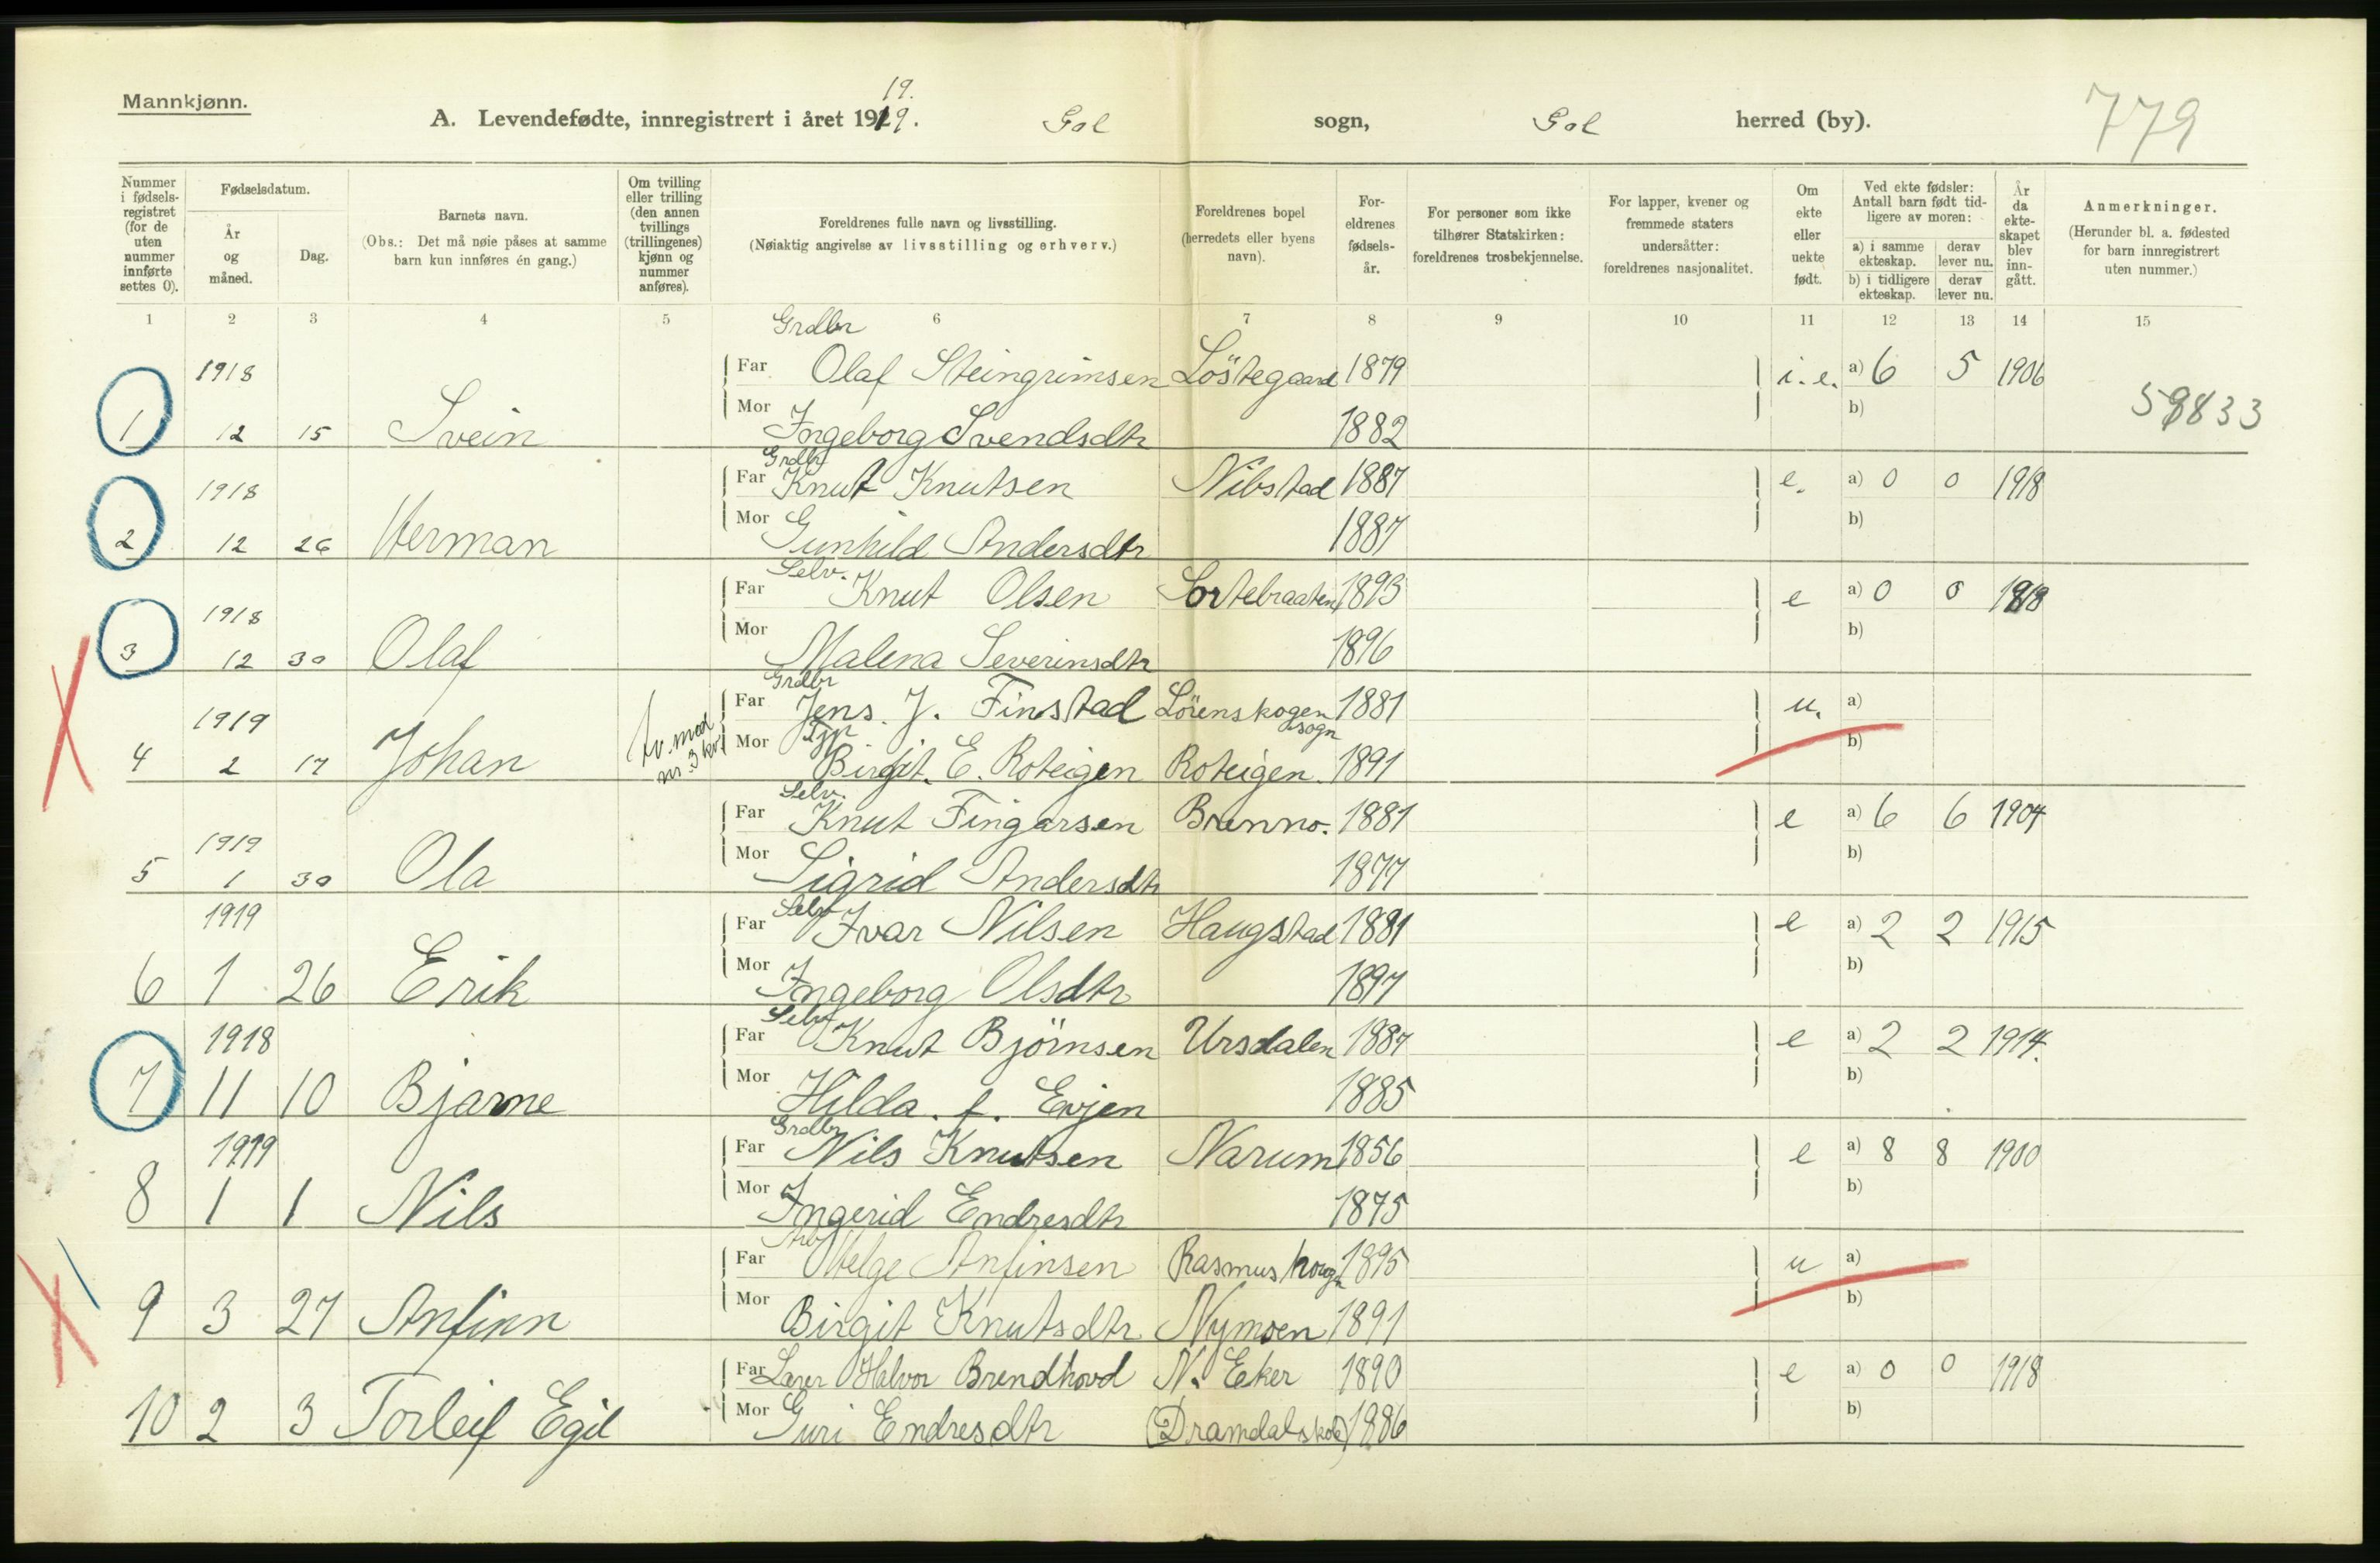 Mannkjønn.
19.
A. Levendefødte, innregistrert i året 1919. Gol sogn, Gol herred (by). 779
Nummer i fødselsregistret (for de uten nummer innførte settes 0).
Fødselsdatum.
År og måned.
Dag.
Barnets navn.
(Obs.: Det må nøie påses at samme barn kun innføres én gang.)
Om tvilling eller trilling (den annen tvillings (trillingenes) kjønn og nummer anføres).
Foreldrenes fulle navn og livsstilling.
(Nøiaktig angivelse av livsstilling og erhverv.)
Foreldrenes bopel (herredets eller byens navn).
Foreldrenes fødselsår.
For personer som ikke tilhører Statskirken: foreldrenes trosbekjennelse.
For lapper, kvener og fremmede staters undersåtter: foreldrenes nasjonalitet.
Om ekte eller uekte født.
Ved ekte fødsler: Antall barn født tidligere av moren:
a) i samme ekteskap. derav lever nu.
b) i tidligere ekteskap. derav lever nu.
År da ekteskapet blev inngått.
Anmerkninger.
(Herunder bl. a. fødested for barn innregistrert uten nummer.)
1 2 3 4 5 6 7 8 9 10 11 12 13 14 15
Grdbr
1918 Far Olaf Steingrimsen Löstegaard 1879 i.e. a) 6 5 1906
1 12 15 Svein Mor Ingeborg Svendsdtr 1882 b) 59833
Grdbr
1918 Far Knut Knutsen Nibstad 1887 e. a) 0 0 1918
2 12 26 Herman Mor Gunhild Andersdtr 1887 b)
Selv.
1918 Far Knut Olsen Sortebraaten 1893 e a) 0 0 1918
3 12 30 Olaf Mor Malena Severinsdtr 1896 b)
Grdbr
1919 Far Jens J. Finstad Lörenskogen sogn 1881 u. a)
4 2 17 Johan tv. med nr. 3 kv. Mor Tjp Birgit. E. Roteigen Roteigen 1891 b)
Selv.
1919 Far Knut Fingarsen Brenno. 1881 e a) 6 6 1904
5 1 30 Ola Mor Sigrid Andersdtr 1877 b)
Selv
1919 Far Ivar Nilsen Haugstad 1881 e a) 2 2 1915
6 1 26 Erik Mor Ingeborg Olsdtr 1897 b)
Selv
1918 Far Knut Björnsen Ursdalen 1887 e a) 2 2 1914.
7 11 10 Bjarne Mor Hilda. f. Evjen 1885 b)
Grdbr
1919 Far Nils Knutsen Narum 1856 e a) 8 8 1900
8 1 1 Nils Mor Ingerid Endresdtr 1875 b)
Arb
Far Helge Anfinsen 1895 u a)
9 3 27 Anfinn Mor Birgit Knutsdtr Nymoen 1891 b)
Far Lærer Halvor Brendhovd N. Eker 1890 e a) 0 0 1918
10 2 3 Torleif Egil Mor Guri Endresdtr (Dramdalskole) 1886 b)